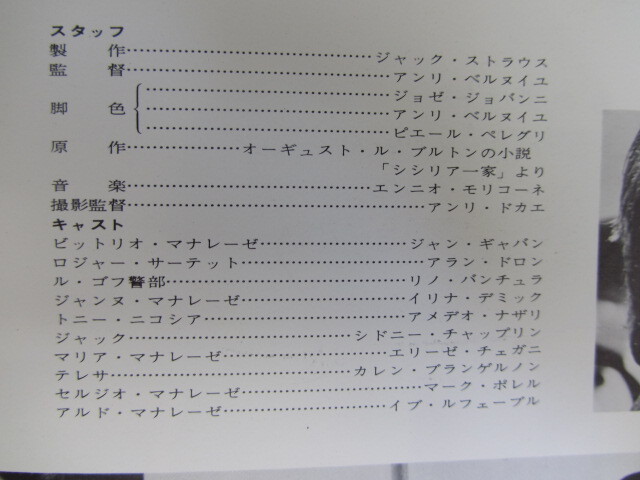 スタッフ
製　作……………………………ジャック・ストラウス
監　督……………………………アンリ・ベルヌイユ
……………………………ジョゼ・ジョバンニ
脚　色{……………………………アンリ・ベルヌイユ
……………………………ピエール・ペレグリ
原　作……………オーギュスト・ル・ブルトンの小説
「シシリア一家」より
音　楽……………………………エンニオ・モリコーネ
撮影監督……………………………アンリ・ドカエ
キャスト
ビットリオ・マナレーゼ………………ジャン・ギャバン
ロジャー・サーテット…………………アラン・ドロン
ル・ゴフ警部……………………………リノ・バンチュラ
ジャンヌ・マナレーゼ…………………イリナ・デミック
トニー・ニコシア………………………アメデオ・ナザリ
ジャック…………………………シドニー・チャップリン
マリア・マナレーゼ…………………エリーゼ・チェガニ
テレサ……………………………カレン・ブランゲルノン
セルジオ・マナレーゼ…………………マーク・ポレル
アルド・マナレーゼ…………………イブ・ルフェーブル